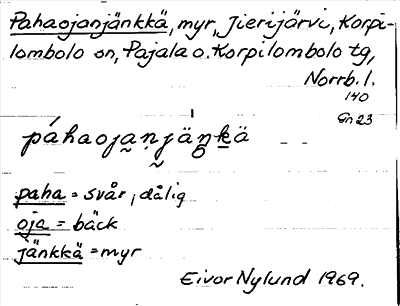 Pahaojanjänkkä, myr, Jierijärvi, Korpi-
lombolo sn, Pajala o. Korpilombolo tg,
Norrb. l.
140
Gn 23
páhaoja̰n̰jäŋk̲ä
paha = svår, dålig
oja = bäck
jänkkä = myr
Eivor Nylund 1969.